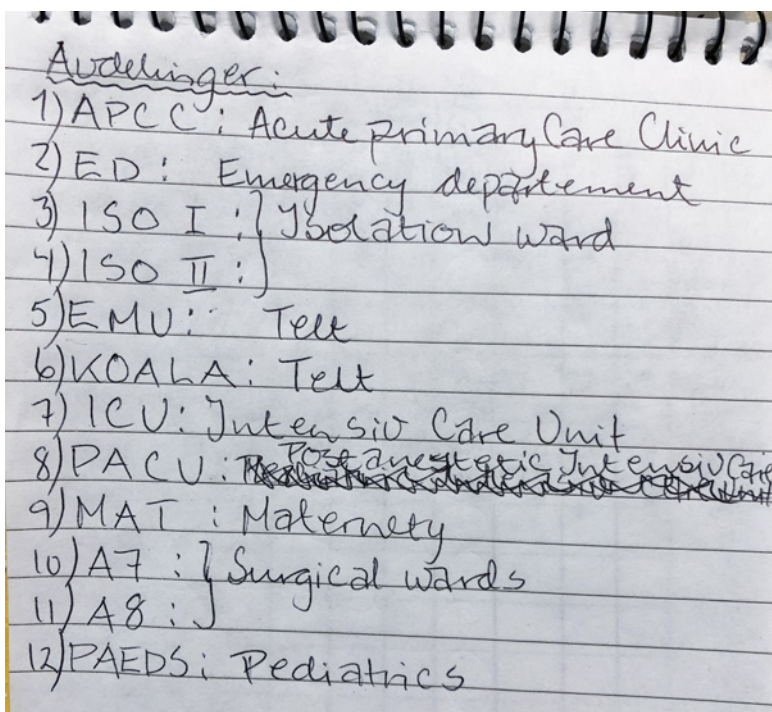 Avdelinger:
1) APCC: Acute primary Care Clinic
2) ED: Emergency departement
3) ISO I: } Isolation ward
4) ISO II: }
5) EMU: Telt
6) KOALA: Telt
7) ICU: Intensiv Care Unit
8) PACU: Post anestetic Intensiv Care
9) MAT: Maternety
10) A7: } Surgical wards
11) A8: }
12) PAEDS: Pediatrics